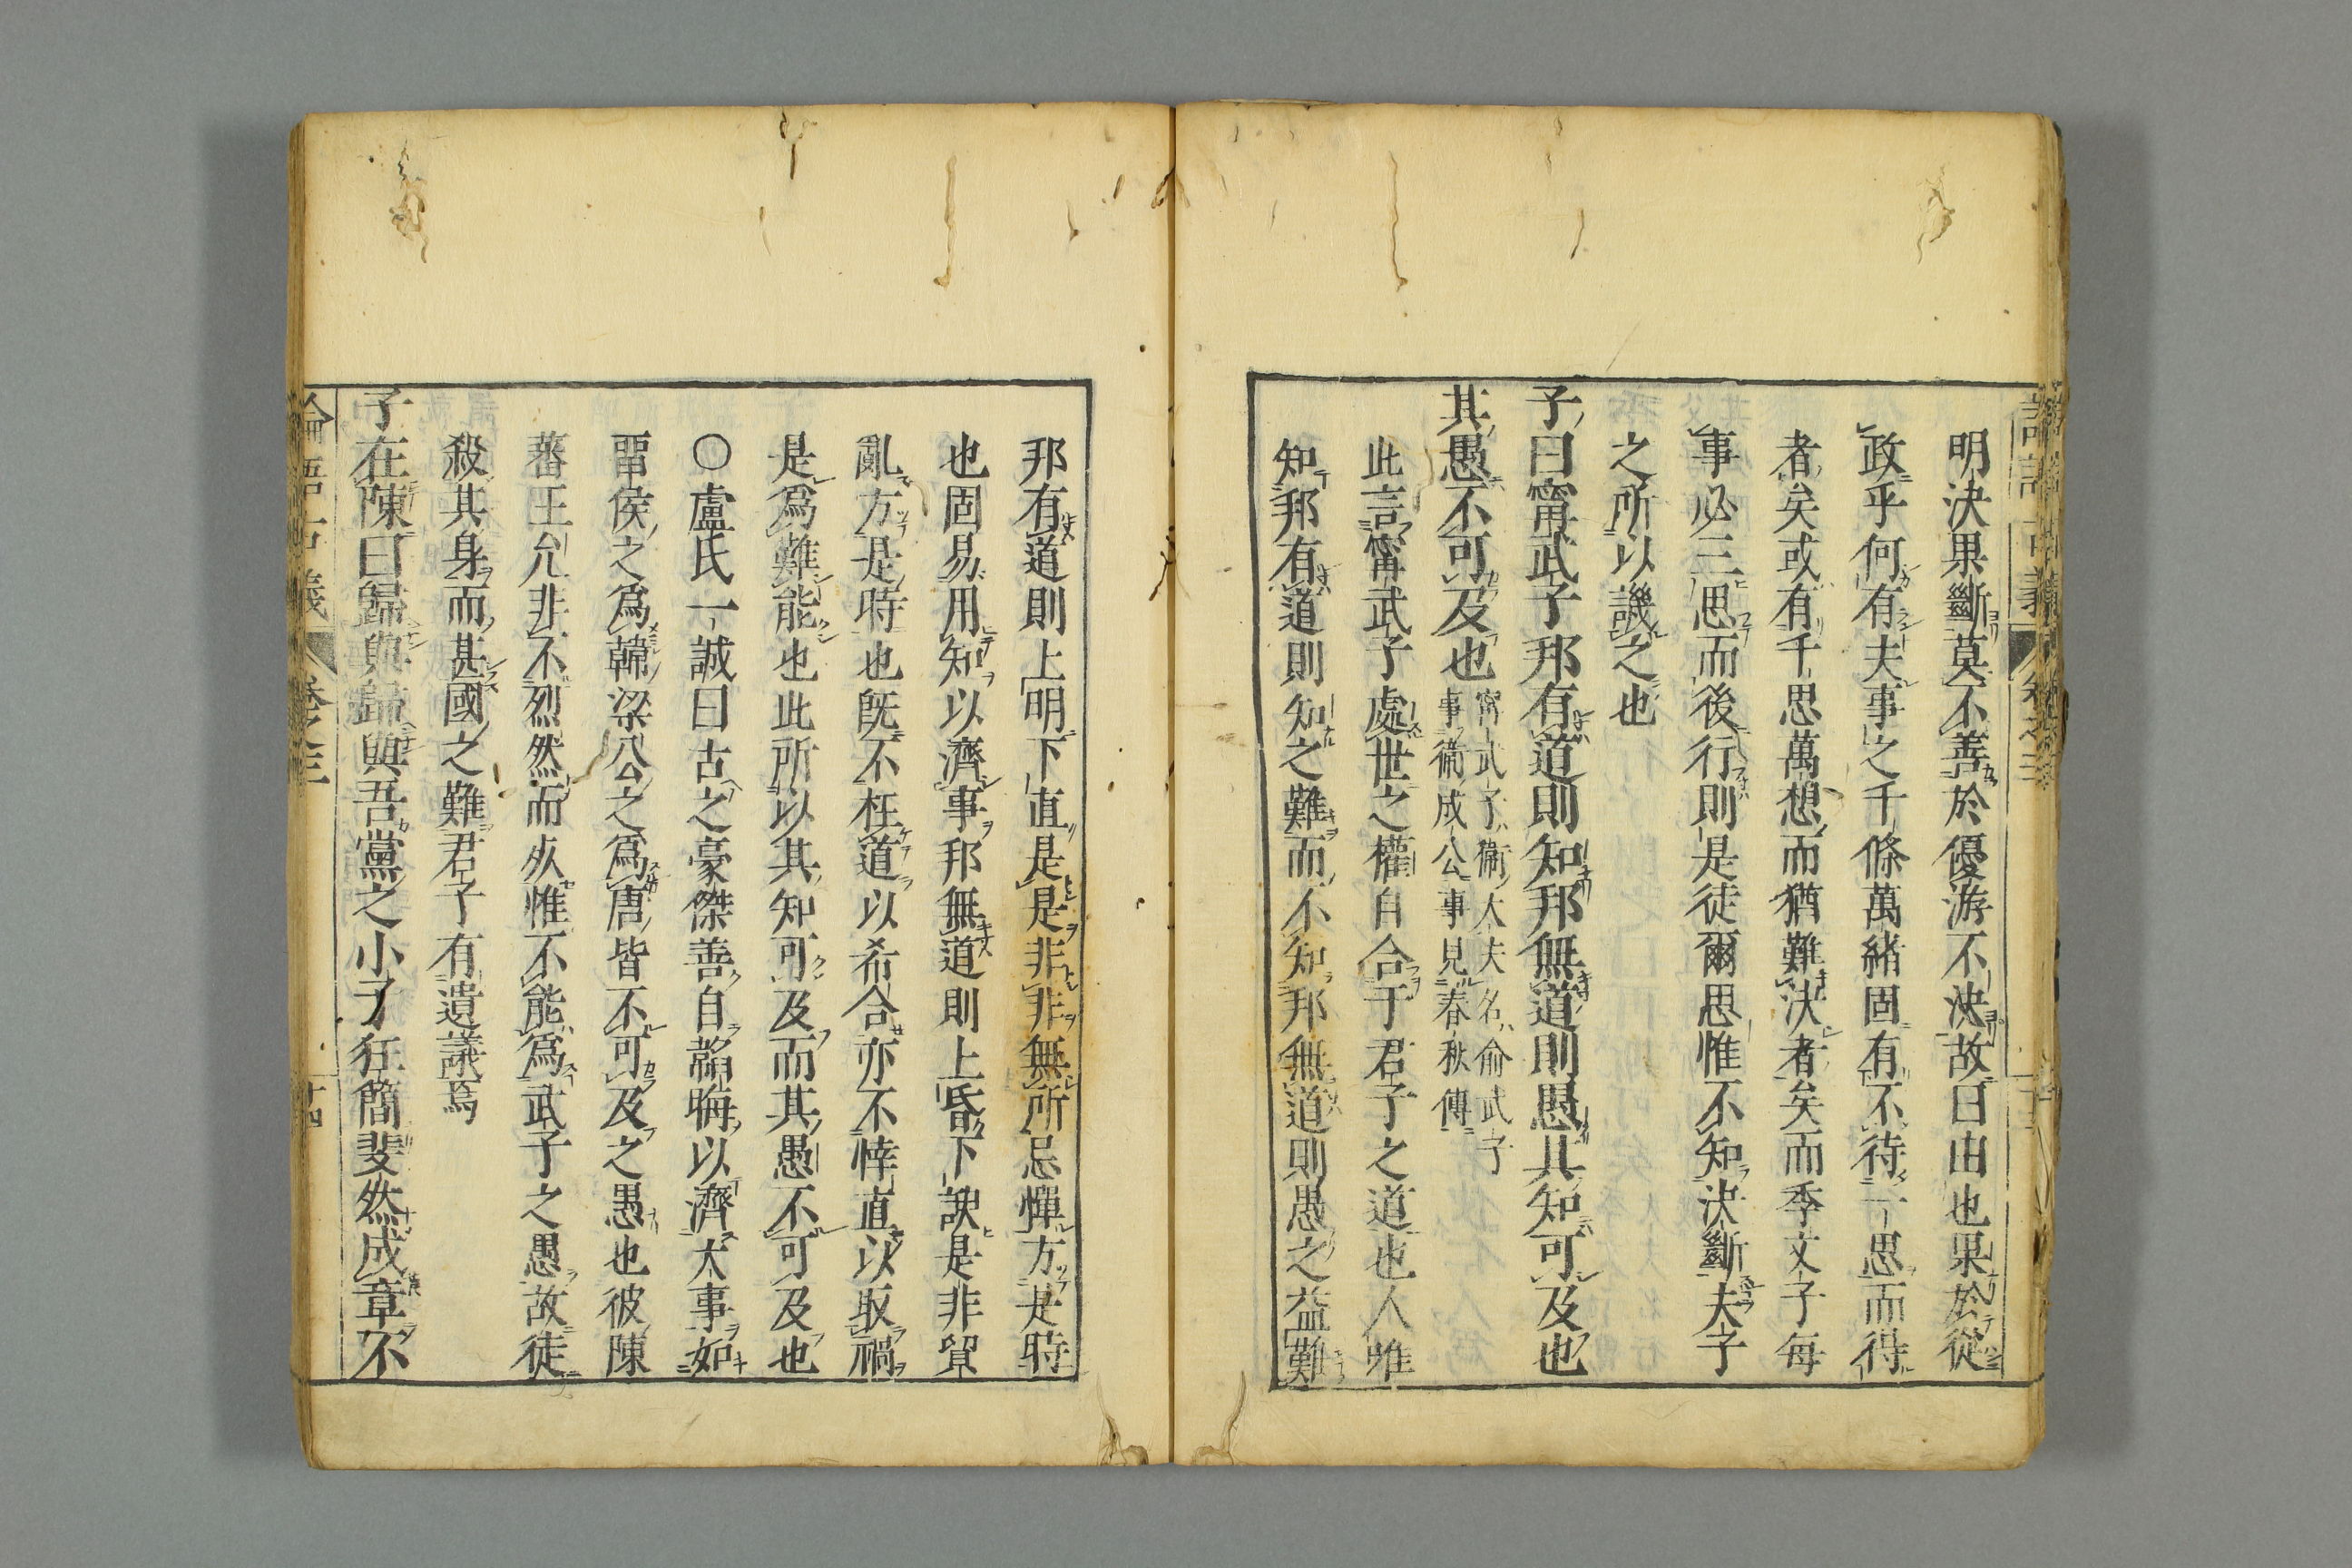 明決果斷莫不善於優游不決故曰由也果於從
政乎何有夫事之千條萬緒固有不待一思而得
者矣或有千思萬想而猶難決者矣而季文子每
事必三思而後行則是徒爾思惟不知決斷夫子
之所以譏之也
子曰甯武子邦有道則知邦無道則愚其知可及也
其愚不可及也
甯武子衞大夫名俞武子
事衞成公事見春秋傳
此言甯武子處世之權自合于君子之道也人唯
知邦有道則知之難而不知邦無道則愚之益難
邦有道則上明下直是是非非無所忌憚方是時
也固易用知以濟事邦無道則上昏下諛是非貿
亂方是時也既不枉道以希合亦不悻直以取禍
是爲難能也此所以其知可及而其愚不可及也
○盧氏一誠曰古之豪傑善自韜晦以濟大事如
留侯之爲韓梁公之爲唐皆不可及之愚也彼陳
蕃王允非不烈烈然而力惟不能爲武子之愚故徒
殺其身而甚國之難君子有遺議焉
子在陳曰歸與歸與吾黨之小子狂簡斐然成章不
論語古義 卷之三 十四